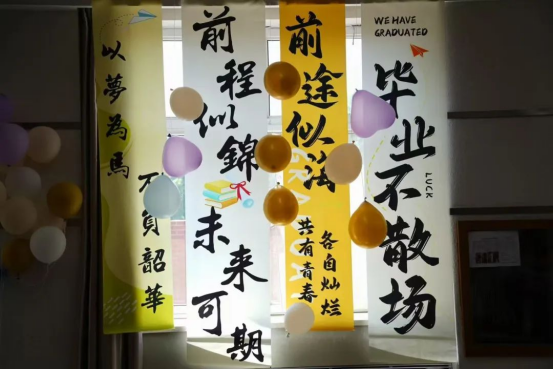 以夢為馬
不負韶華
前程似錦
未来可期
前途似海
共有青春
各自灿烂
WE HAVE
GRADUATED
毕业不散场
LUCK